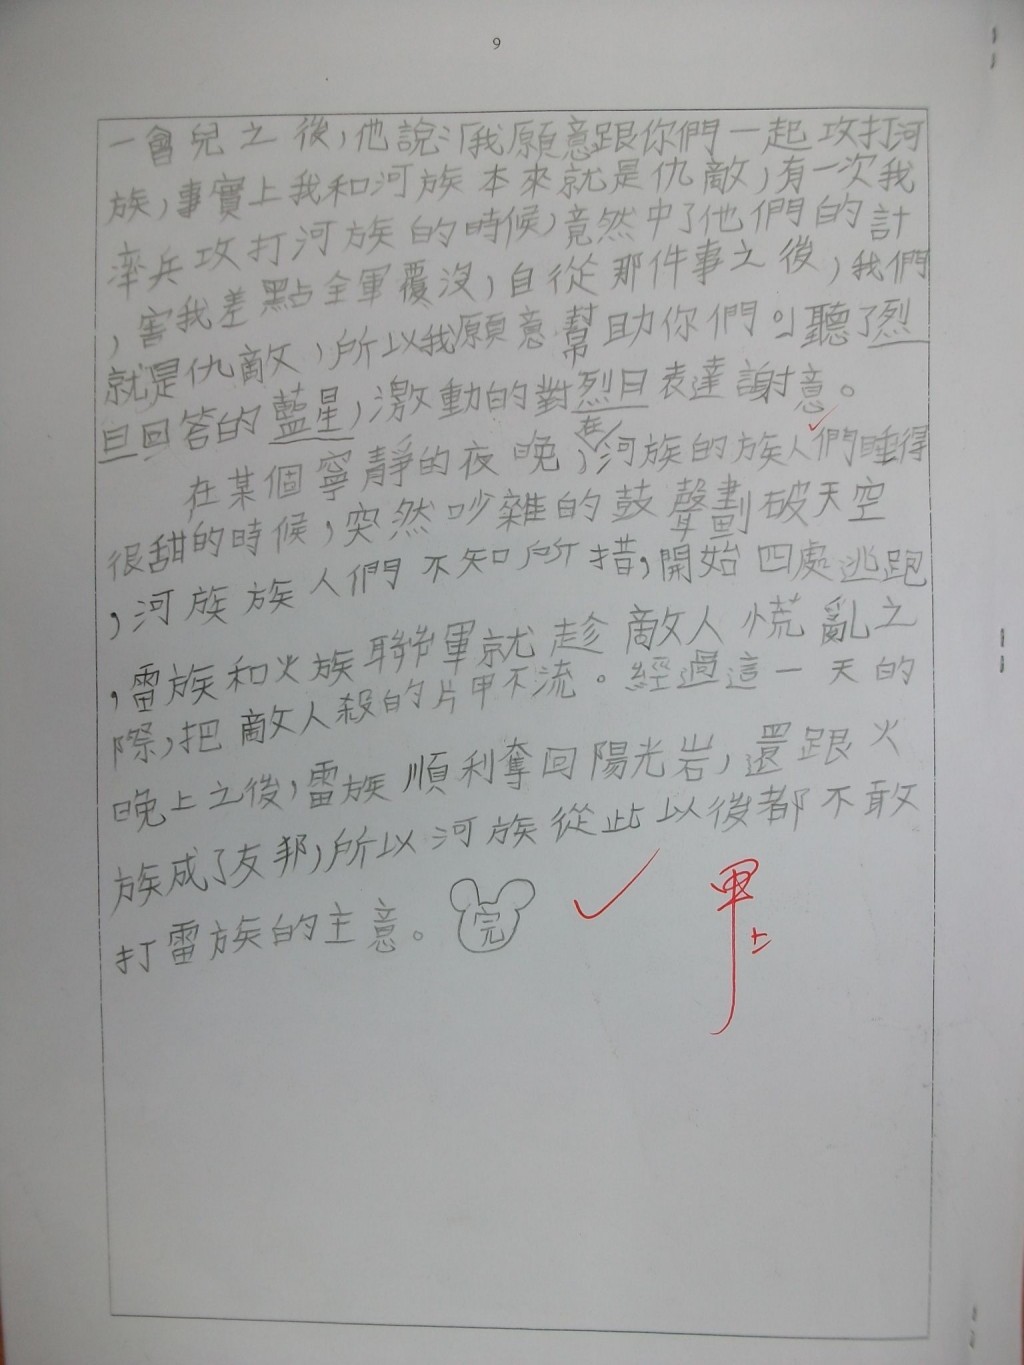 9
一會兒之後，他說：「我願意跟你們一起攻打河
族，事實上我和河族本來就是仇敵，有一次我
率兵攻打河族的時候，竟然中了他們的計
，害我差點全軍覆沒，自從那件事之後，我們
就是仇敵，所以我願意幫助你們。」聽了烈
日回答的藍星，激動的對烈日表達謝意。
在
在某個寧靜的夜晚，河族的族人們睡得
很甜的時候，突然吵雜的鼓聲劃破天空
，河族族人們不知所措，開始四處逃跑
，雷族和火族聯軍就趁敵人慌亂之
際，把敵人殺的片甲不流。經過這一天的
晚上之後，雷族順利奪回陽光岩，還跟火
族成了友邦，所以河族從此以後都不敢
打雷族的主意。完
甲上